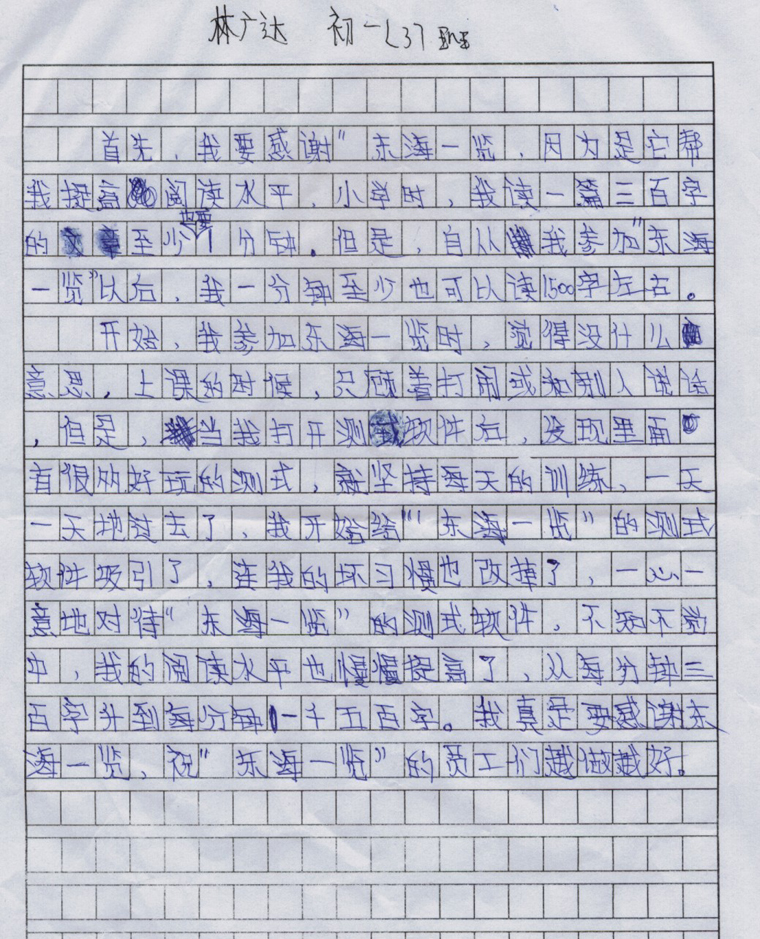 林广达 初一(3)班
首先，我要感谢"东海一览，因为是它帮
我提高阅读水平，小学时，我读一篇三百字
的至少也要1分钟．但是，自从我参加"东海
一览"以后，我一分钟至少也可以读1500字左右。
开始，我参加东海一览时，觉得没什么
意思，上课的时候，只顾着打闹或和别人说话
，但是，当我打开测试软件后，发现里面
有很多好玩的测式，就坚持每天的训练，一天
一天地过去了，我开始给"东海一览"的测式
软件吸引了，连我的坏习惯也改掉了，一心一
意地对待"东海一览"的测式软件，不知不觉
中，我的阅读水平也慢慢提高了，从每分钟三
百字升到每分钟一千五百字。我真是要感谢东
海一览，祝"东海一览"的员工们越做越好。